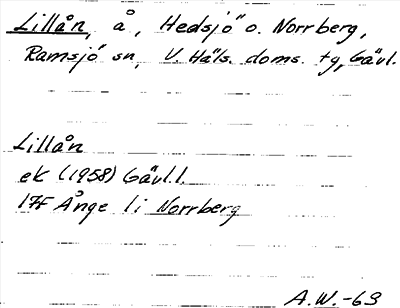 Lillån, å, Hedsjö o. Norrberg,
Ramsjö sn, V. Häls. doms. tg, Gävl.
Lillån
ek (1958) Gävl.l.
17F Ånge 1 i Norrberg
A.W.-63